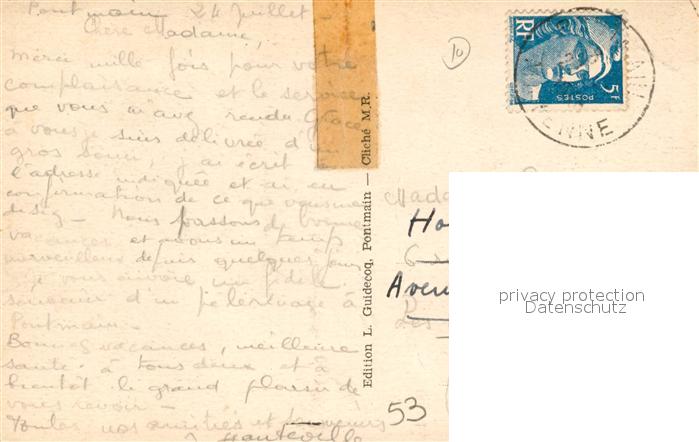 Pontmain 24 Juillet -
Chère Madame,
Merci mille fois pour votre
complaisance et le service
que vous m'avez rendu. Grâce
à vous je suis délivrée d'un
gros souci, j'ai écrit à
l'adresse indiquée et ai eu
confirmation de ce que vous me
disiez - Nous passons de bonnes
vacances et avons un temps
merveilleux depuis quelques jours
Je vous envoie un fidèle
souvenir d'un pèlerinage à
Pontmain -
Bonnes vacances, meilleure
santé à tous deux et à
bientôt le grand plaisir de
vous revoir -
Toutes nos amitiés et souvenirs
Hauteville
Edition L. Guidecoq, Pontmain — Cliché M.R.
10
RF
5F
POSTES
ENNE
Mada
Ho
6
Aven
53
privacy protection
Datenschutz